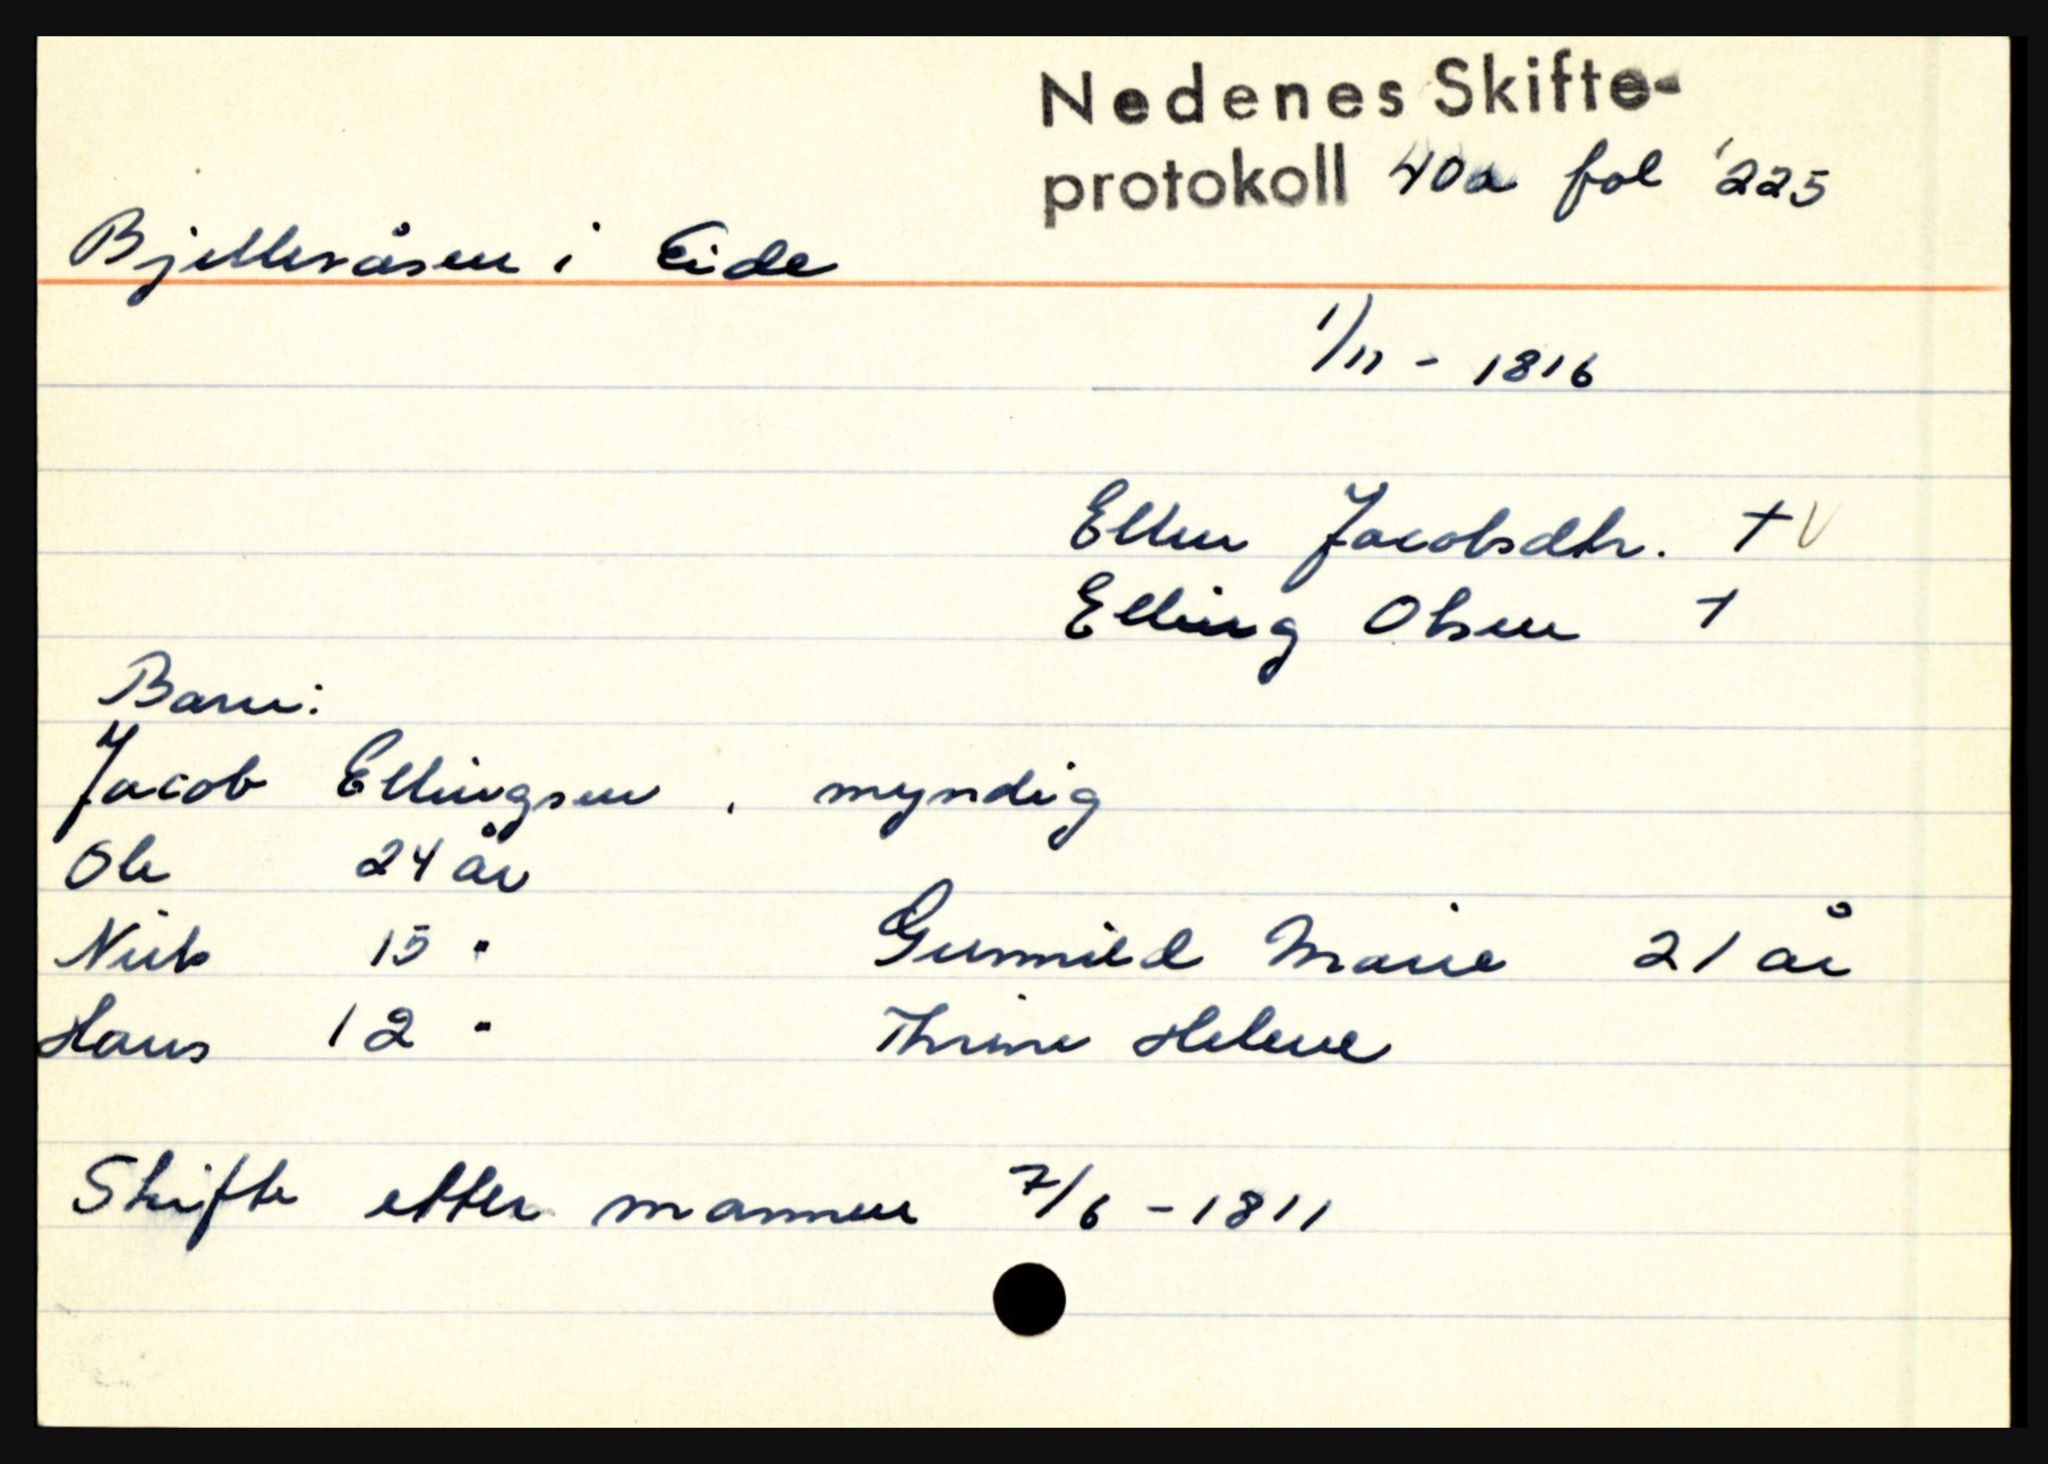 Nedenes Skifte-
protokoll 40a fol 225
Bjellevåsen i Eide
1/11 - 1816
Ellen Jacobsdtr. + V
Elling Olsen +
Barn:
Jacob Ellingsen, myndig
Ole 24 år
Niels 15 " Gunnild Marie 21 år
Hans 12 " Thrine Helene
Skifte etter mannen 7/6 - 1811